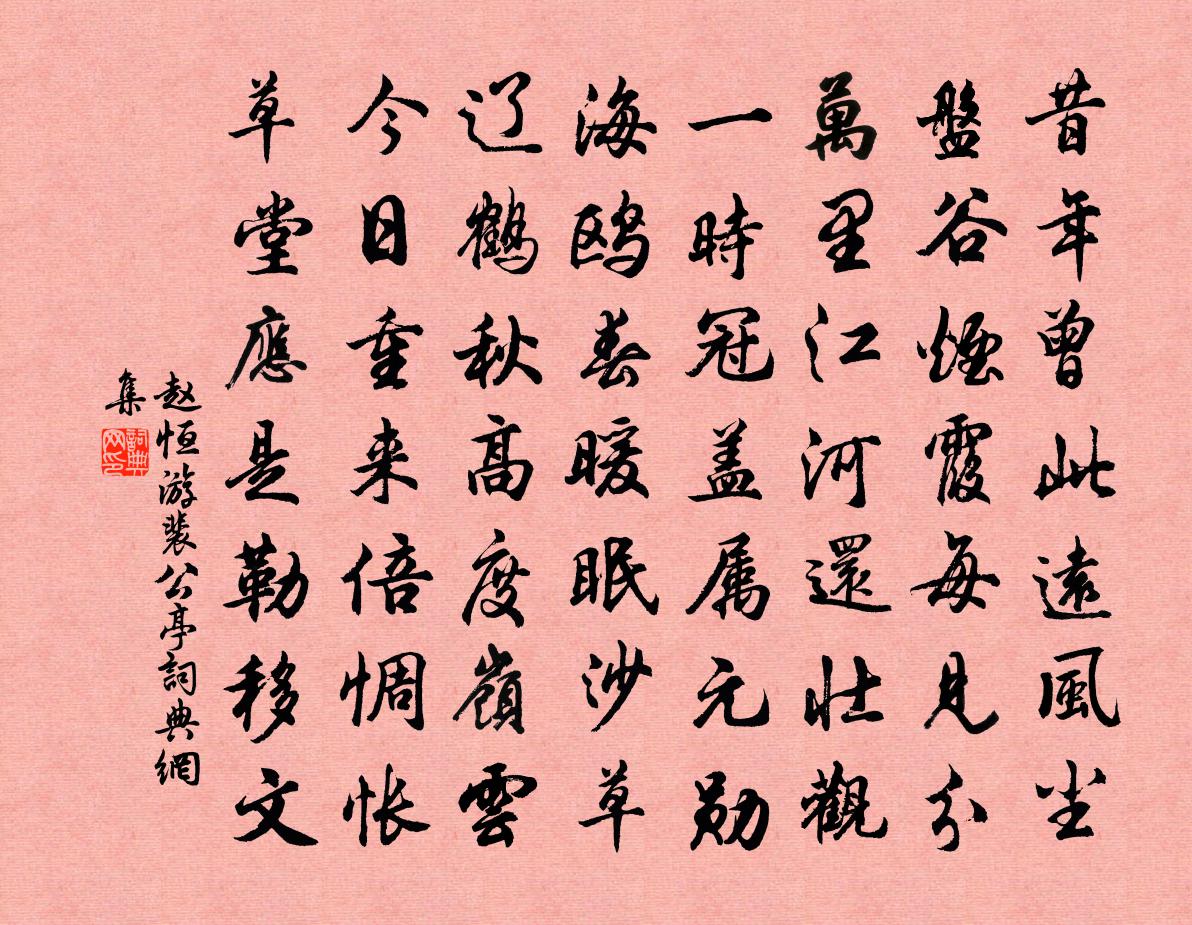 昔年曾此遠風尘
盤谷煙霞每見分
萬里江河還壮觀
一時冠盖属元勋
海鸥春暖眠沙草
辽鶴秋高度嶺雲
今日重来倍惆怅
草堂應是勒移文
赵恒游裴公亭詞典網
集
詞典网印